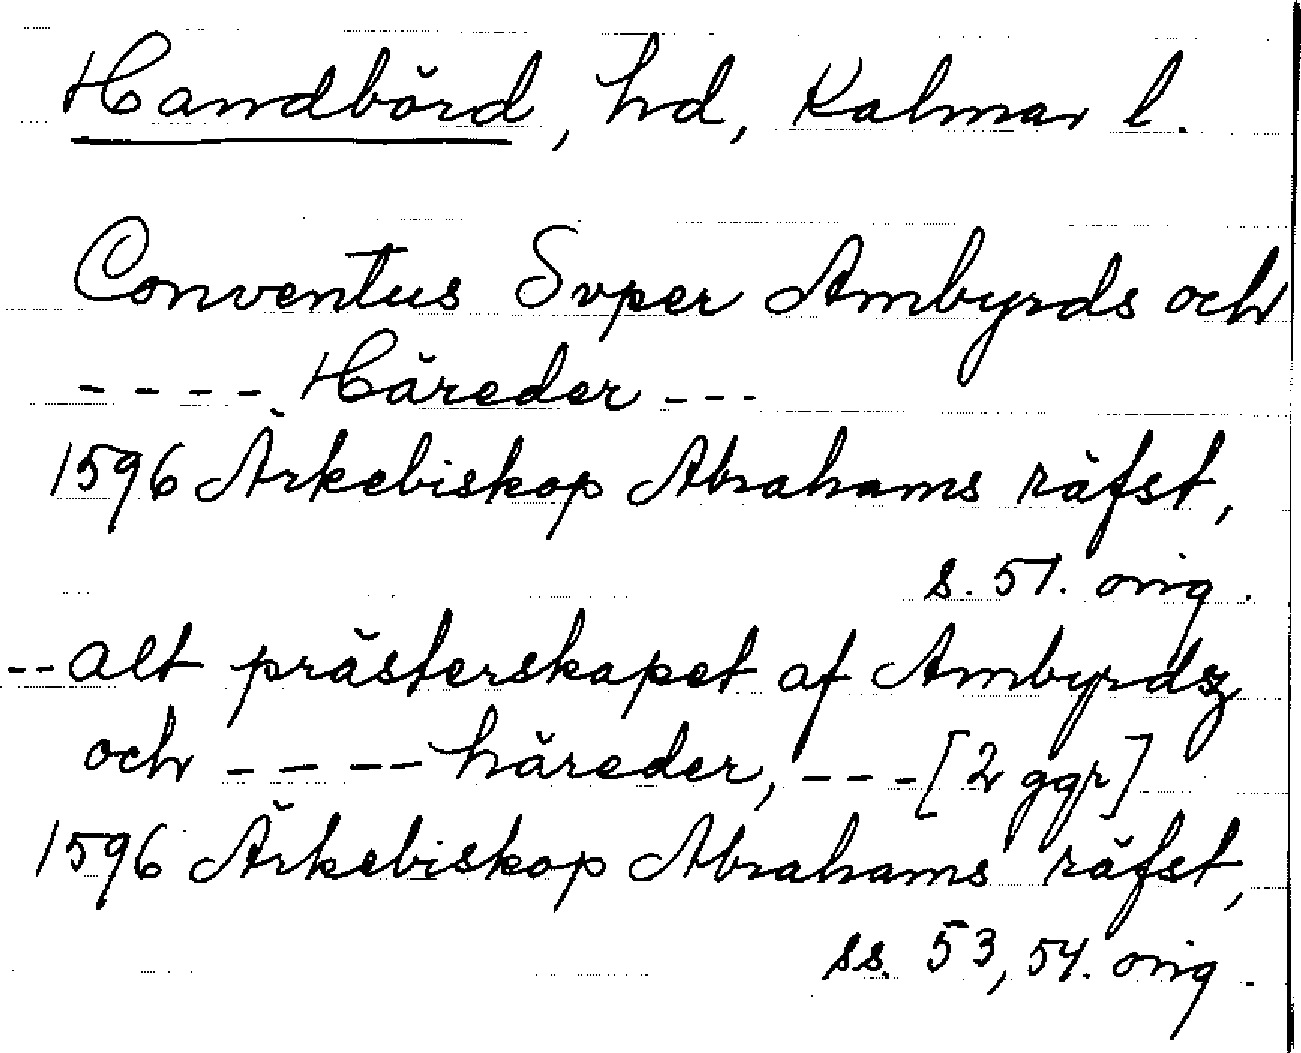 Handbörd, hd, Kalmar l.
Conventus Svper Ambyrds och
- - - - Häreder - - -
1596 Ärkebiskop Abrahams räfst,
s. 51. orig.
-- alt prästerskapet af Ambyrdz
och - - - - häreder, - - - [2 ggr]
1596 Ärkebiskop Abrahams räfst,
ss. 53, 54. orig.